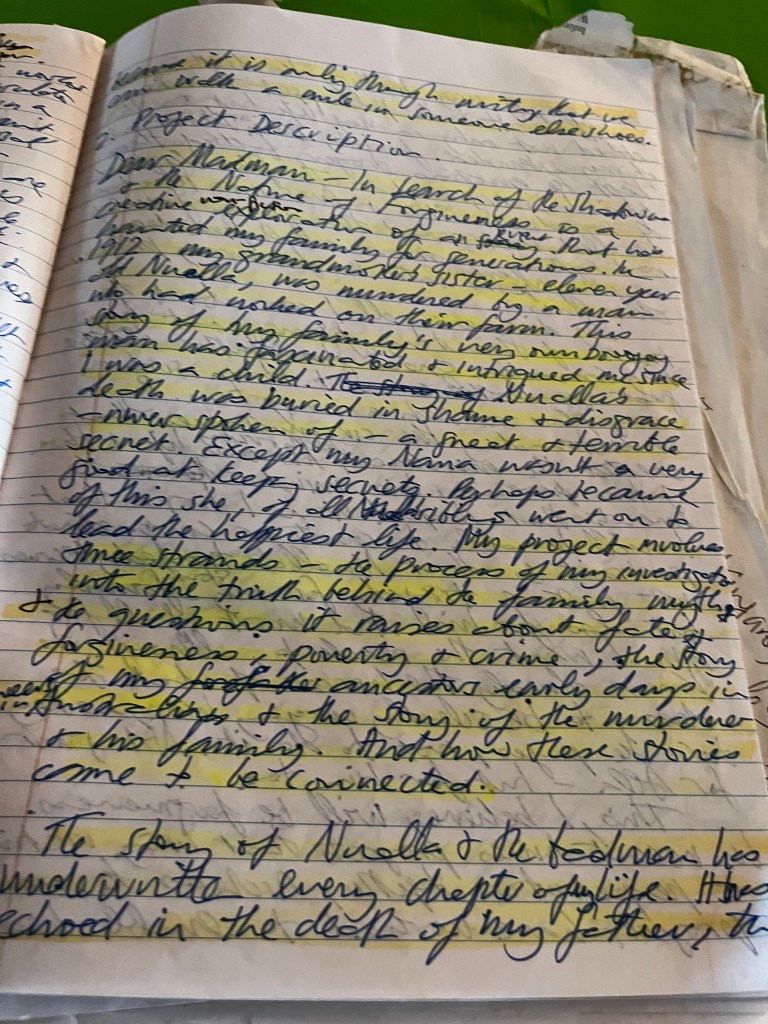 because it is only through writing that we
can walk a mile in someone elses shoes.
Project Description.
Dear Madman – In search of the Shadowman
& the Nature of Forgiveness is a
creative non-fiction exploration of an event that has
haunted my family for generations. In
1912 my grandmother's sister – eleven year
old Nuella, was murdered by a man
who had worked on their farm. This
story of my family's very own bogey
man has fascinated & intrigued me since
I was a child. Nuella's
death was buried in shame & disgrace
– never spoken of – a great & terrible
secret. Except my Nana wasn't a very
good at keeping secrets. Perhaps because
of this she, of all went on to
lead the happiest life. My project involves
three strands – the process of my investigation
into the truth behind the family myths
& the questions it raises about fate &
forgiveness, poverty & crime, the story
of my ancestors early days in
& the story of the murderer
& his family. And how these stories
came to be connected.
The story of Nuella & the has
underwritten every chapter of my life. It has
echoed in the death of my father, th